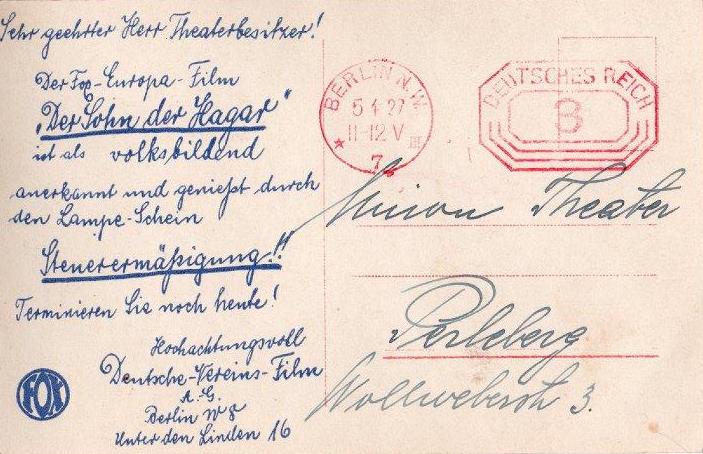 Sehr geehrter Herr Theaterbesitzer!
Der Fox-Europa-Film
„Der Sohn der Hagar"
ist als volksbildend
anerkannt und genießt durch
den Lampe-Schein
Steuerermäßigung!!
Terminieren Sie noch heute!
Hochachtungsvoll
Deutsche-Vereins-Film
A.-G.
Berlin W 8
Unter den Linden 16
FOX
BERLIN N.W.
5 4 27
11-12 V
III
7
DEUTSCHES REICH
3
Union Theater
Perleberg
Wollweberstr 3.